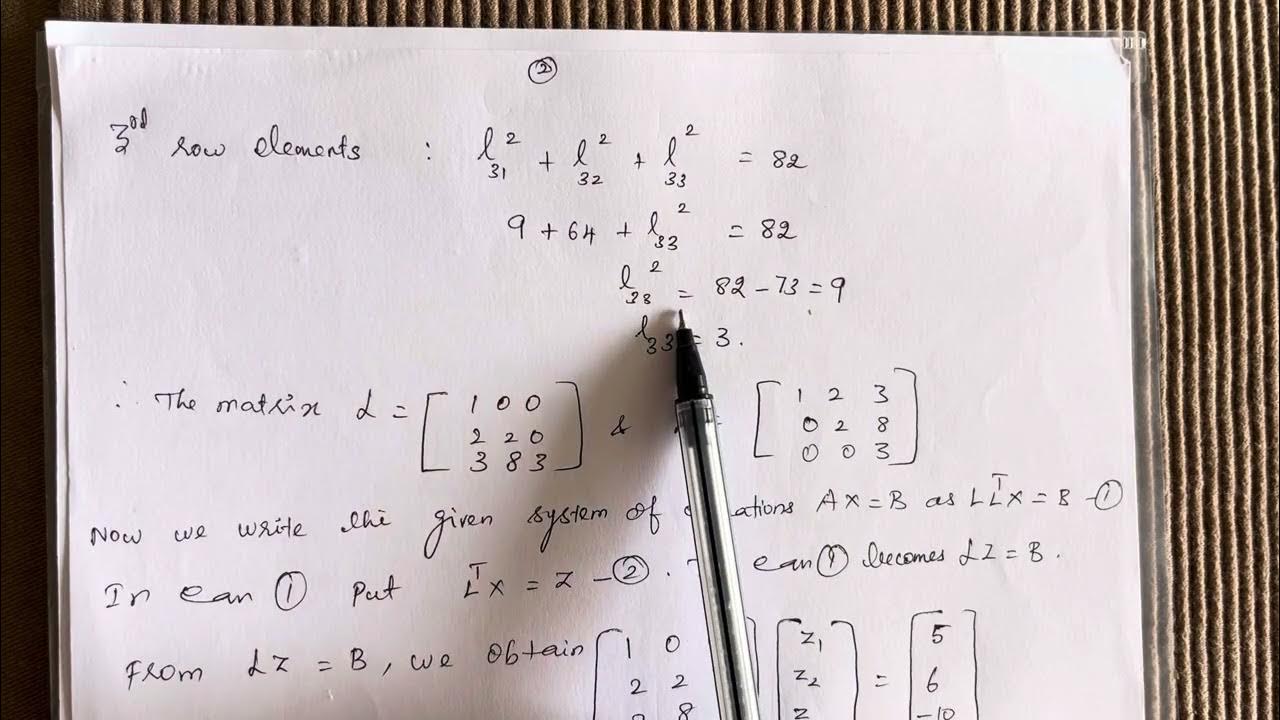 ②
3rd row elements : l₃₁² + l₃₂² + l₃₃² = 82
9 + 64 + l₃₃² = 82
l₃₃² = 82 - 73 = 9
l₃₃ = 3.
∴ The matrix L = [1 0 0; 2 2 0; 3 8 3] & = [1 2 3; 0 2 8; 0 0 3]
Now we write the given system of AX = B as LLᵀX = B - ①
In eqn ① Put LᵀX = Z - ② . eqn ① becomes LZ = B.
From LZ = B, we obtain [1 0; 2 2; 8] [z₁; z₂; z] = [5; 6; -10]